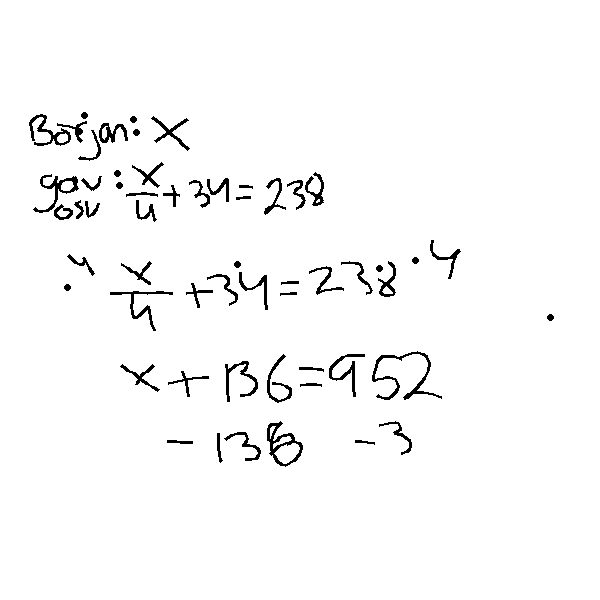 Börjar: X
gav : x/4 + 34 = 238
osv
·4 x/4 + 34 = 238 ·4
x + 136 = 952
- 136 - 3